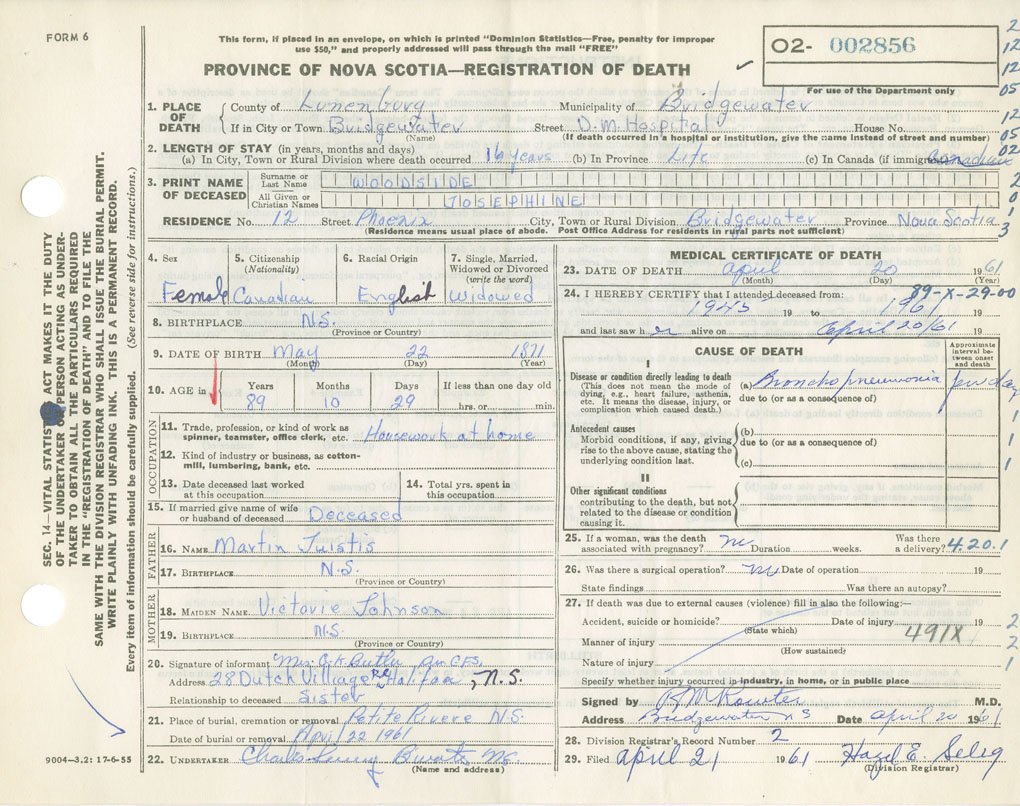 FORM 6
This form, if placed in an envelope, on which is printed "Dominion Statistics—Free, penalty for improper
use $50," and properly addressed will pass through the mail "FREE"
PROVINCE OF NOVA SCOTIA—REGISTRATION OF DEATH
O2- 002856
For use of the Department only
1. PLACE OF DEATH
County of Lunenburg Municipality of Bridgewater
If in City or Town Bridgewater Street D.M. Hospital House No.
(Name) (If death occurred in a hospital or institution, give the name instead of street and number)
2. LENGTH OF STAY (in years, months and days)
(a) In City, Town or Rural Division where death occurred 16 years (b) In Province Life (c) In Canada (if immigrant) Canadian
3. PRINT NAME OF DECEASED
Surname or Last Name WOODSIDE
All Given or Christian Names JOSEPHINE
RESIDENCE No. 12 Street Phoenix City, Town or Rural Division Bridgewater Province Nova Scotia
(Residence means usual place of abode. Post Office Address for residents in rural parts not sufficient)
4. Sex Female
5. Citizenship (Nationality) Canadian
6. Racial Origin English
7. Single, Married, Widowed or Divorced (write the word) Widowed
8. BIRTHPLACE N.S.
(Province or Country)
9. DATE OF BIRTH May 22 1871
(Month) (Day) (Year)
10. AGE in Years 89 Months 10 Days 29 If less than one day old hrs. or min.
OCCUPATION
11. Trade, profession, or kind of work as spinner, teamster, office clerk, etc. Housework at home
12. Kind of industry or business, as cotton-mill, lumbering, bank, etc.
13. Date deceased last worked at this occupation
14. Total yrs. spent in this occupation
15. If married give name of wife or husband of deceased Deceased
FATHER
16. NAME Martin
17. BIRTHPLACE N.S.
(Province or Country)
MOTHER
18. MAIDEN NAME Victorie Johnson
19. BIRTHPLACE N.S.
(Province or Country)
20. Signature of informant Mrs. C.K. Butler
Address 28 Dutch Village Rd Halifax, N.S.
Relationship to deceased Sister
21. Place of burial, cremation or removal Petite Riviere N.S.
Date of burial or removal April 22 1961
22. UNDERTAKER
(Name and address)
MEDICAL CERTIFICATE OF DEATH
23. DATE OF DEATH April 20 1961
(Month) (Day) (Year)
89-X-29-00
24. I HEREBY CERTIFY that I attended deceased from:
1945 19 to 1961 19
and last saw her alive on April 20/61 19
CAUSE OF DEATH
Approximate interval between onset and death
I
Disease or condition directly leading to death
(This does not mean the mode of dying, e.g., heart failure, asthenia, etc. It means the disease, injury, or complication which caused death.)
(a) Bronchopneumonia few days
due to (or as a consequence of)
Antecedent causes
Morbid conditions, if any, giving rise to the above cause, stating the underlying condition last.
(b)
due to (or as a consequence of)
(c)
II
Other significant conditions
contributing to the death, but not related to the disease or condition causing it.
25. If a woman, was the death associated with pregnancy? no Duration weeks. Was there a delivery? 4.20.1
26. Was there a surgical operation? no Date of operation 19
State findings Was there an autopsy?
27. If death was due to external causes (violence) fill in also the following:—
Accident, suicide or homicide? Date of injury 19
(State which)
491X
Manner of injury
(How sustained)
Nature of injury
Specify whether injury occurred in industry, in home, or in public place
Signed by M.D.
Address Bridgewater NS Date April 20 1961
28. Division Registrar's Record Number 2
29. Filed April 21 1961 Hazel E. Selig
(Division Registrar)
SEC. 14—VITAL STATISTICS ACT MAKES IT THE DUTY
OF THE UNDERTAKER OR PERSON ACTING AS UNDER-
TAKER TO OBTAIN ALL THE PARTICULARS REQUIRED
IN THE "REGISTRATION OF DEATH" AND TO FILE THE
SAME WITH THE DIVISION REGISTRAR WHO SHALL ISSUE THE BURIAL PERMIT.
WRITE PLAINLY WITH UNFADING INK. THIS IS A PERMANENT RECORD.
Every item of information should be carefully supplied. (See reverse side for instructions.)
9004—3.2: 17-6-55
2
12
12
05
12
05
02
2
0
1
3
1
1
1
2
2
1